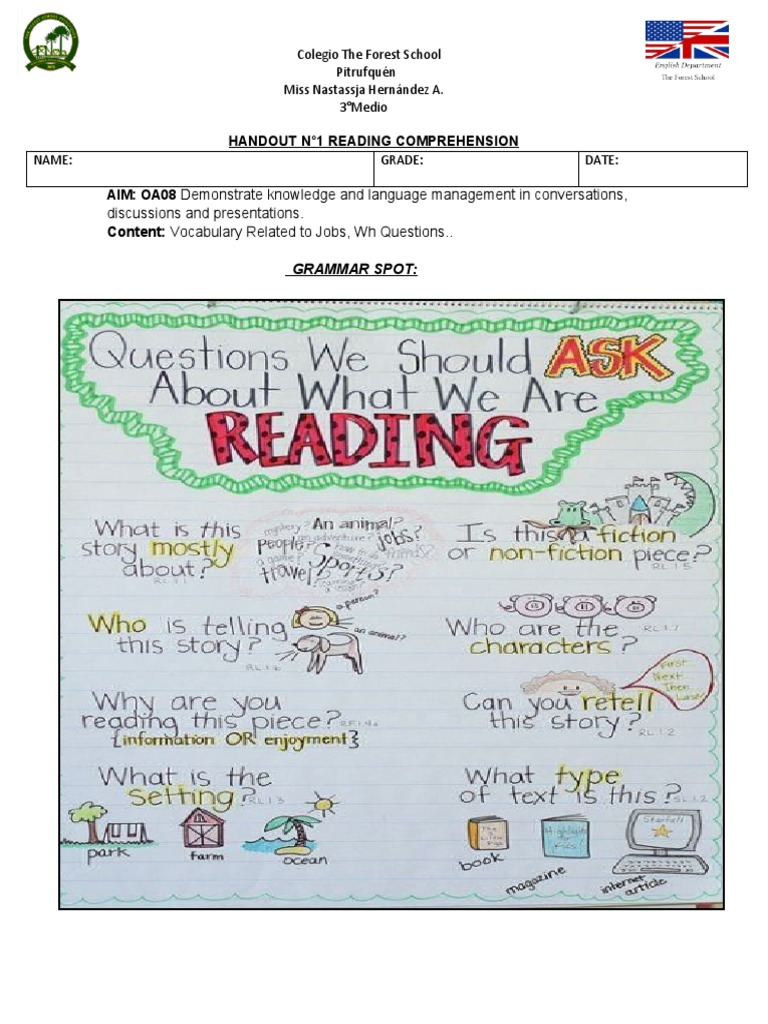 Colegio The Forest School
Pitrufquén
Miss Nastassja Hernández A.
3°Medio
English Department
The Forest School
HANDOUT N°1 READING COMPREHENSION
NAME: GRADE: DATE:
AIM: OA08 Demonstrate knowledge and language management in conversations,
discussions and presentations.
Content: Vocabulary Related to Jobs, Wh Questions..
GRAMMAR SPOT:
Questions We Should ASK
About What We Are
READING
What is this
story mostly
about?
RL.3.1
mystery? An animal?
people? an adventure? jobs?
a game? friends?
travel? sports?
Is this a fiction
or non-fiction piece?
RL.1.5
Who is telling
this story?
RL.1.6
a person?
an animal?
Who are the RL.1.7
characters?
Why are you
reading this piece? RF.1.4a
{information OR enjoyment}
Can you retell
this story?
RL.1.2
First
Next
Then
Last
What is the
Setting? RL.1.3
park
farm
ocean
What type
of text is this? SL.1.2
The 3 Little Pigs
book
Highlights
magazine
Starfall
internet
article